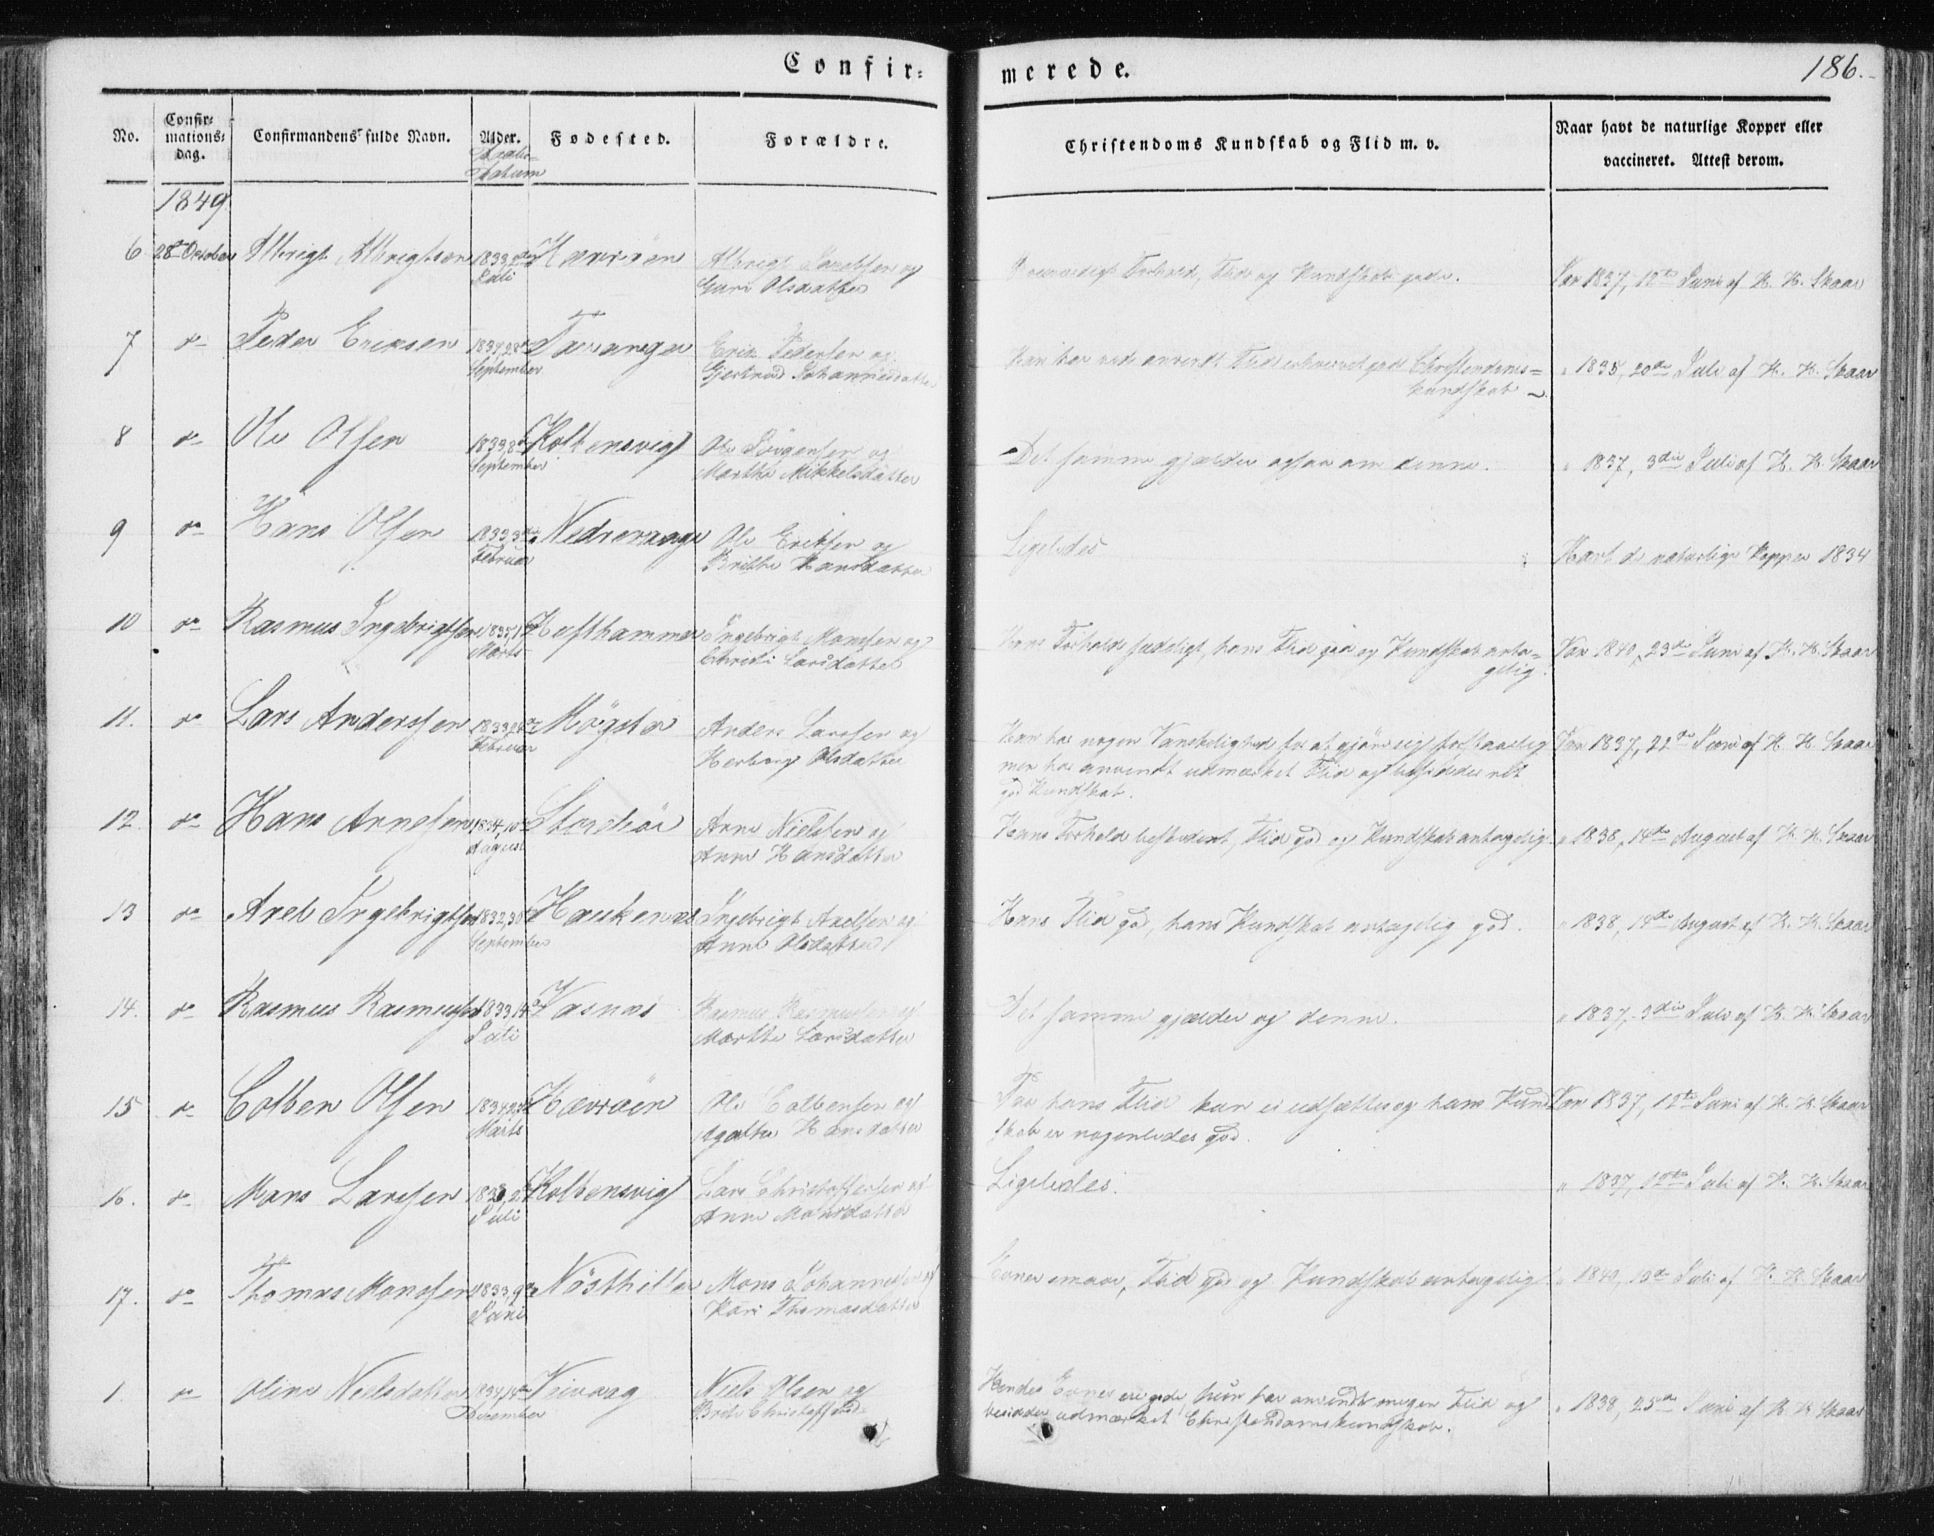 Confir=
merede.
186.
No.
Confir=
mations=
dag.
Confirmandens fulde Navn.
Alder.
Födested.
Forældre.
Christendoms Kundskab og Flid m. v.
Naar havt de naturlige Kopper eller
vaccineret. Attest derom.
Datum
1849
6 28de October Albrigt Albrigtsen 1833 Juli
Albrigt Jacobsen og
Guri Olsdatter
Forhold, Flid og Kundskab gode.
Vac 1837, 12te Juni af H. H. Skaar
7 do Peder Eriksen 1834 28 September Taranger
Erik Pedersen og
Gjertrud Johannesdatter
Han har ved anvendt Flid erhvervet god Christendoms=
kundskab
" 1835, 20de Juli af H. H. Skaar
8 do Ole Olsen 1833, 8de September Kolbensvig
Ole Jörgensen og
Marthe Mikkelsdatter
Det samme gjælder ogsaa om denne.
" 1837, 3die Juli af H. H. Skaar
9 do Hans Olsen 1833, 3die Februar Nedrevaage
Ole Eriksen og
Britthe Hansdatter
Ligeledes
Havt de naturlige Kopper 1834
10 do Rasmus Ingebrigtsen 1835 Marts Hufthammer
Ingebrigt Monsen og
Christi Larsdatter
Hans Forhold sædeligt, hans Flid god og Kundskab anta=
gelig.
Vac 1840, 23de Juni af H. H. Skaar
11. do Lars Anderssen 1833 Februar Mögster
Anders Larssen og
Herborg Olsdatter
Han har nogen Vanskelighed for at gjöre sig forstaaelig
men har anvendt udmærket Flid og besidder ret
god Kundskab.
Vac 1837, 22de Juni af H. H. Skaar
12. do Hans Arnesen 1834, 10de August
Arne Nielssen og
Anne Hansdatter
Hans Forhold beskedent, Flid god og Kundskab antagelig
" 1838, 14de August af H. H. Skaar
13 do Axel Ingebrigtsen 1832, 30 September Haukenæs
Ingebrigt Axelsen og
Anne Olsdatter
Hans Flid god, hans Kundskab antagelig god.
" 1838, 14de August af H. H. Skaar
14. do Rasmus Rasmussen 1833, 14de Juli Vasnæs
Rasmus Rasmussen og
Marthe Larsdatter
Det samme gjælder og denne.
" 1837, 3die Juli af H. H. Skaar
15 do Colben Olsen 1834 Marts Hævröen
Ole Colbensen og
Agathe Hansdatter
Paa hans Flid kan ei udsættes og hans Kund
skab er nogenledes god.
Vac 1837, 12te Juni af H. H. Skaar
16. do Mons Larssen Juli Kolbensvig
Lars Christoffersen og
Anne Monsdatter
Ligeledes.
" 1837, 12te Juli af H. H. Skaar
17. do Thomas Monsen 1833, 9de Juni Nösthilleren
Mons Johannessen og
Kari Thomasdatter
Evner smaae, Flid god og Kundskab antagelig
" 1840, 10de Juli af H. H. Skaar
1. do Oline Nielsdatter 1834, 14de December Veivaag
Niels Olsen og
Brite Christoffersd.
Hendes Evner ere gode, hun har anvendt megen Flid og
besidder udmærket Christendomskundskab.
" 1838, 25de Juni af H. H. Skaar